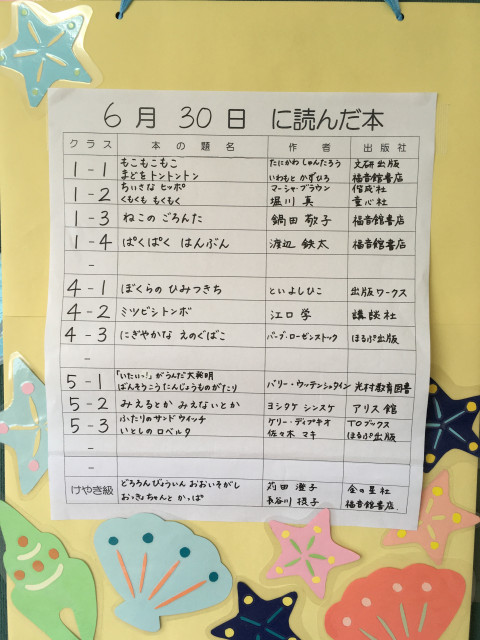 6月30日に読んだ本
クラス 本の題名 作者 出版社
1-1 もこもこもこ たにかわ しゅんたろう 文研出版
まどをトントントン いわもと かずひろ 福音館書店
1-2 ちいさな ヒッポ マーシャ・ブラウン 偕成社
くもくも もくもく 堀川 真 童心社
1-3 ねこの ごろんた 鍋田 敬子 福音館書店
1-4 ぱくぱく はんぶん 渡辺 鉄太 福音館書店
-
4-1 ぼくらの ひみつきち といよしひこ 出版ワークス
4-2 ミツビシトンボ 江口 学 講談社
4-3 にぎやかな えのぐばこ バーブ・ローゼンストック ほるぷ出版
-
5-1 「いたいっ!」がうんだ大発明 バリー・ウッテンシュタイン 光村教育図書
ばんそうこうたんじょうものがたり
5-2 みえるとか みえないとか ヨシタケ シンスケ アリス館
5-3 ふたりのサンドウィッチ ケリー・ディプキオ TOブックス
いとしの ロベルタ 佐々木 マキ ほるぷ出版
-
-
けやき級 どろろんびょういん おおいそがし 苅田 澄子 金の星社
おっきょちゃんと かっぱ 長谷川 摂子 福音館書店